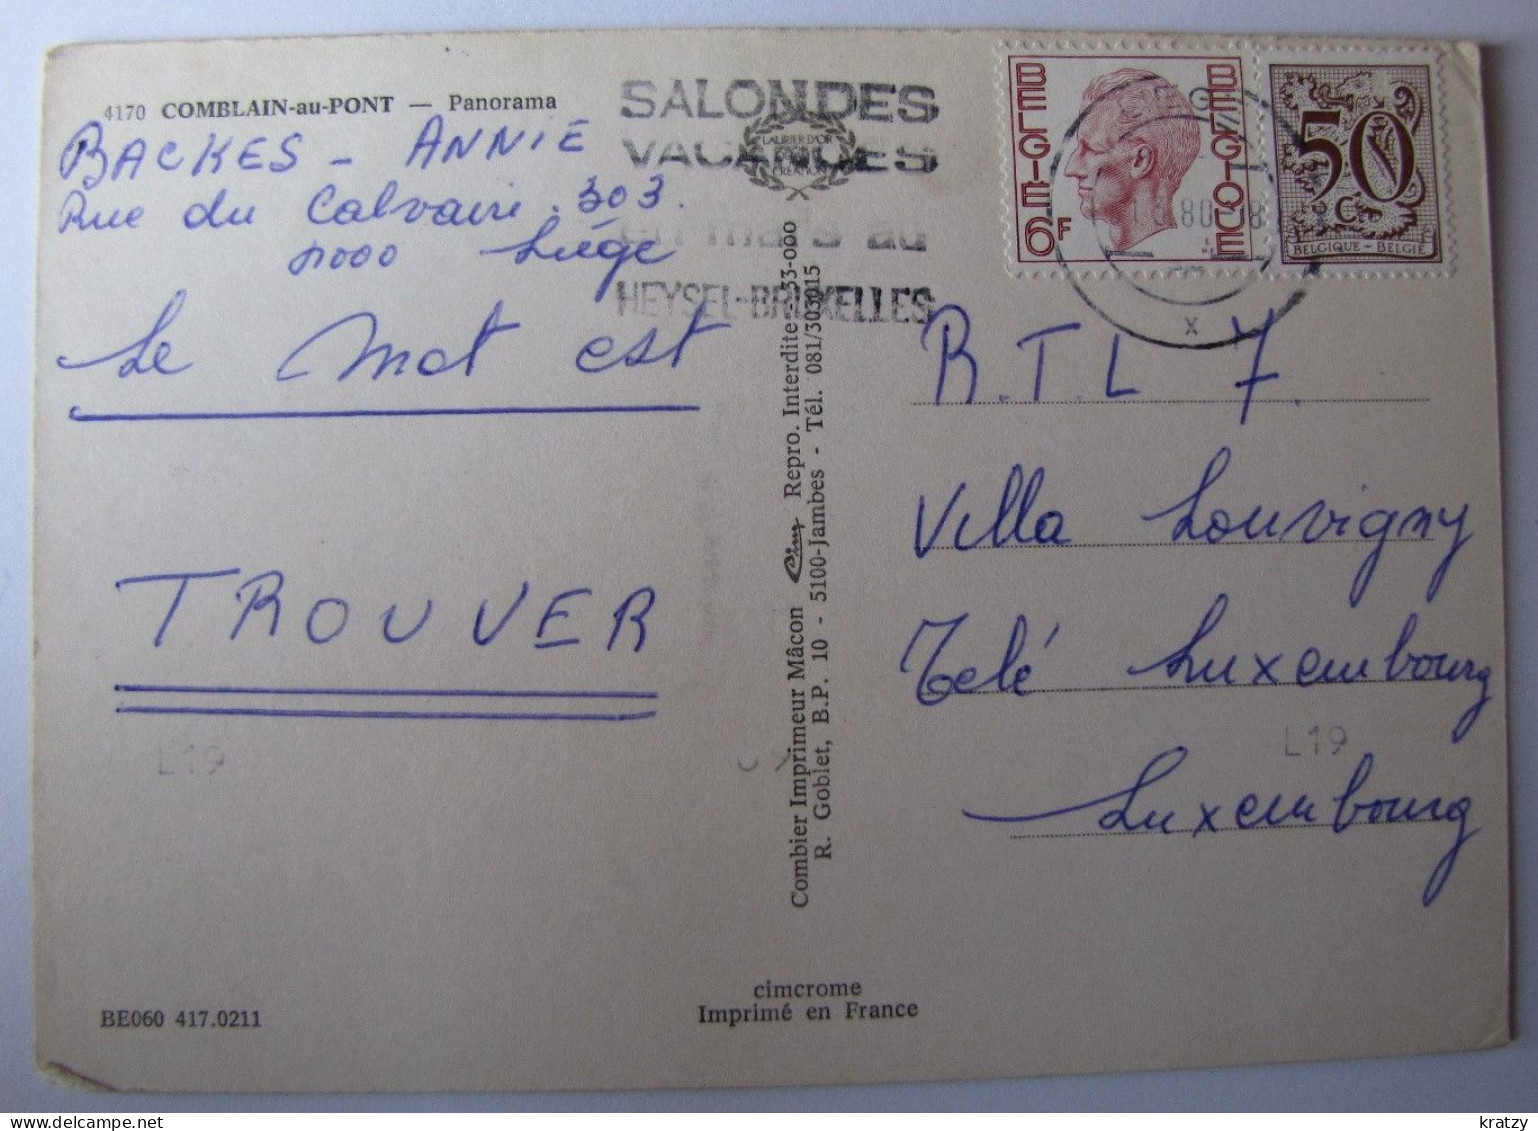 4170 COMBLAIN-au-PONT — Panorama
BACKES - ANNIE
Rue du Calvaire. 303.
4000 Liége
Le mot est
TROUVER
L19
BE060 417.0211
SALON DES
VACANCES
en mars au
HEYSEL-BRUXELLES
LAURIER D'OR
CREATION
BELGIE
BELGIQUE
6F
50
C
BELGIQUE - BELGIË
80
x
Combier Imprimeur Mâcon Cim Repro. Interdite
R. Goblet, B.P. 10 - 5100-Jambes - Tél. 081/303015
R.T.L 7.
Villa Louvigny
Télé Luxembourg
L19
Luxembourg
cimcrome
Imprimé en France
kratzy
delcampe.net